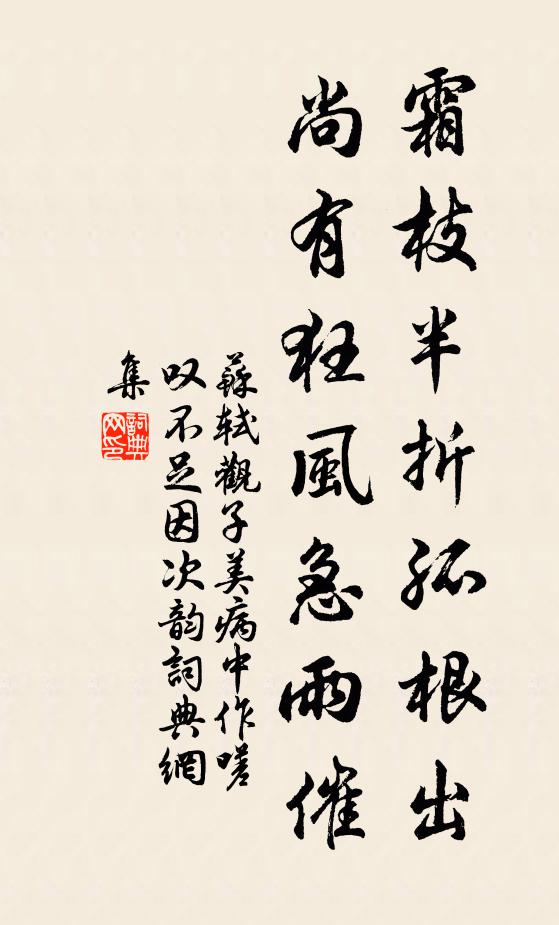 霜枝半折孤根出
尚有狂風急雨催
蘇軾觀子美病中作嗟
叹不足因次韵詞典網
集
詞典
网印